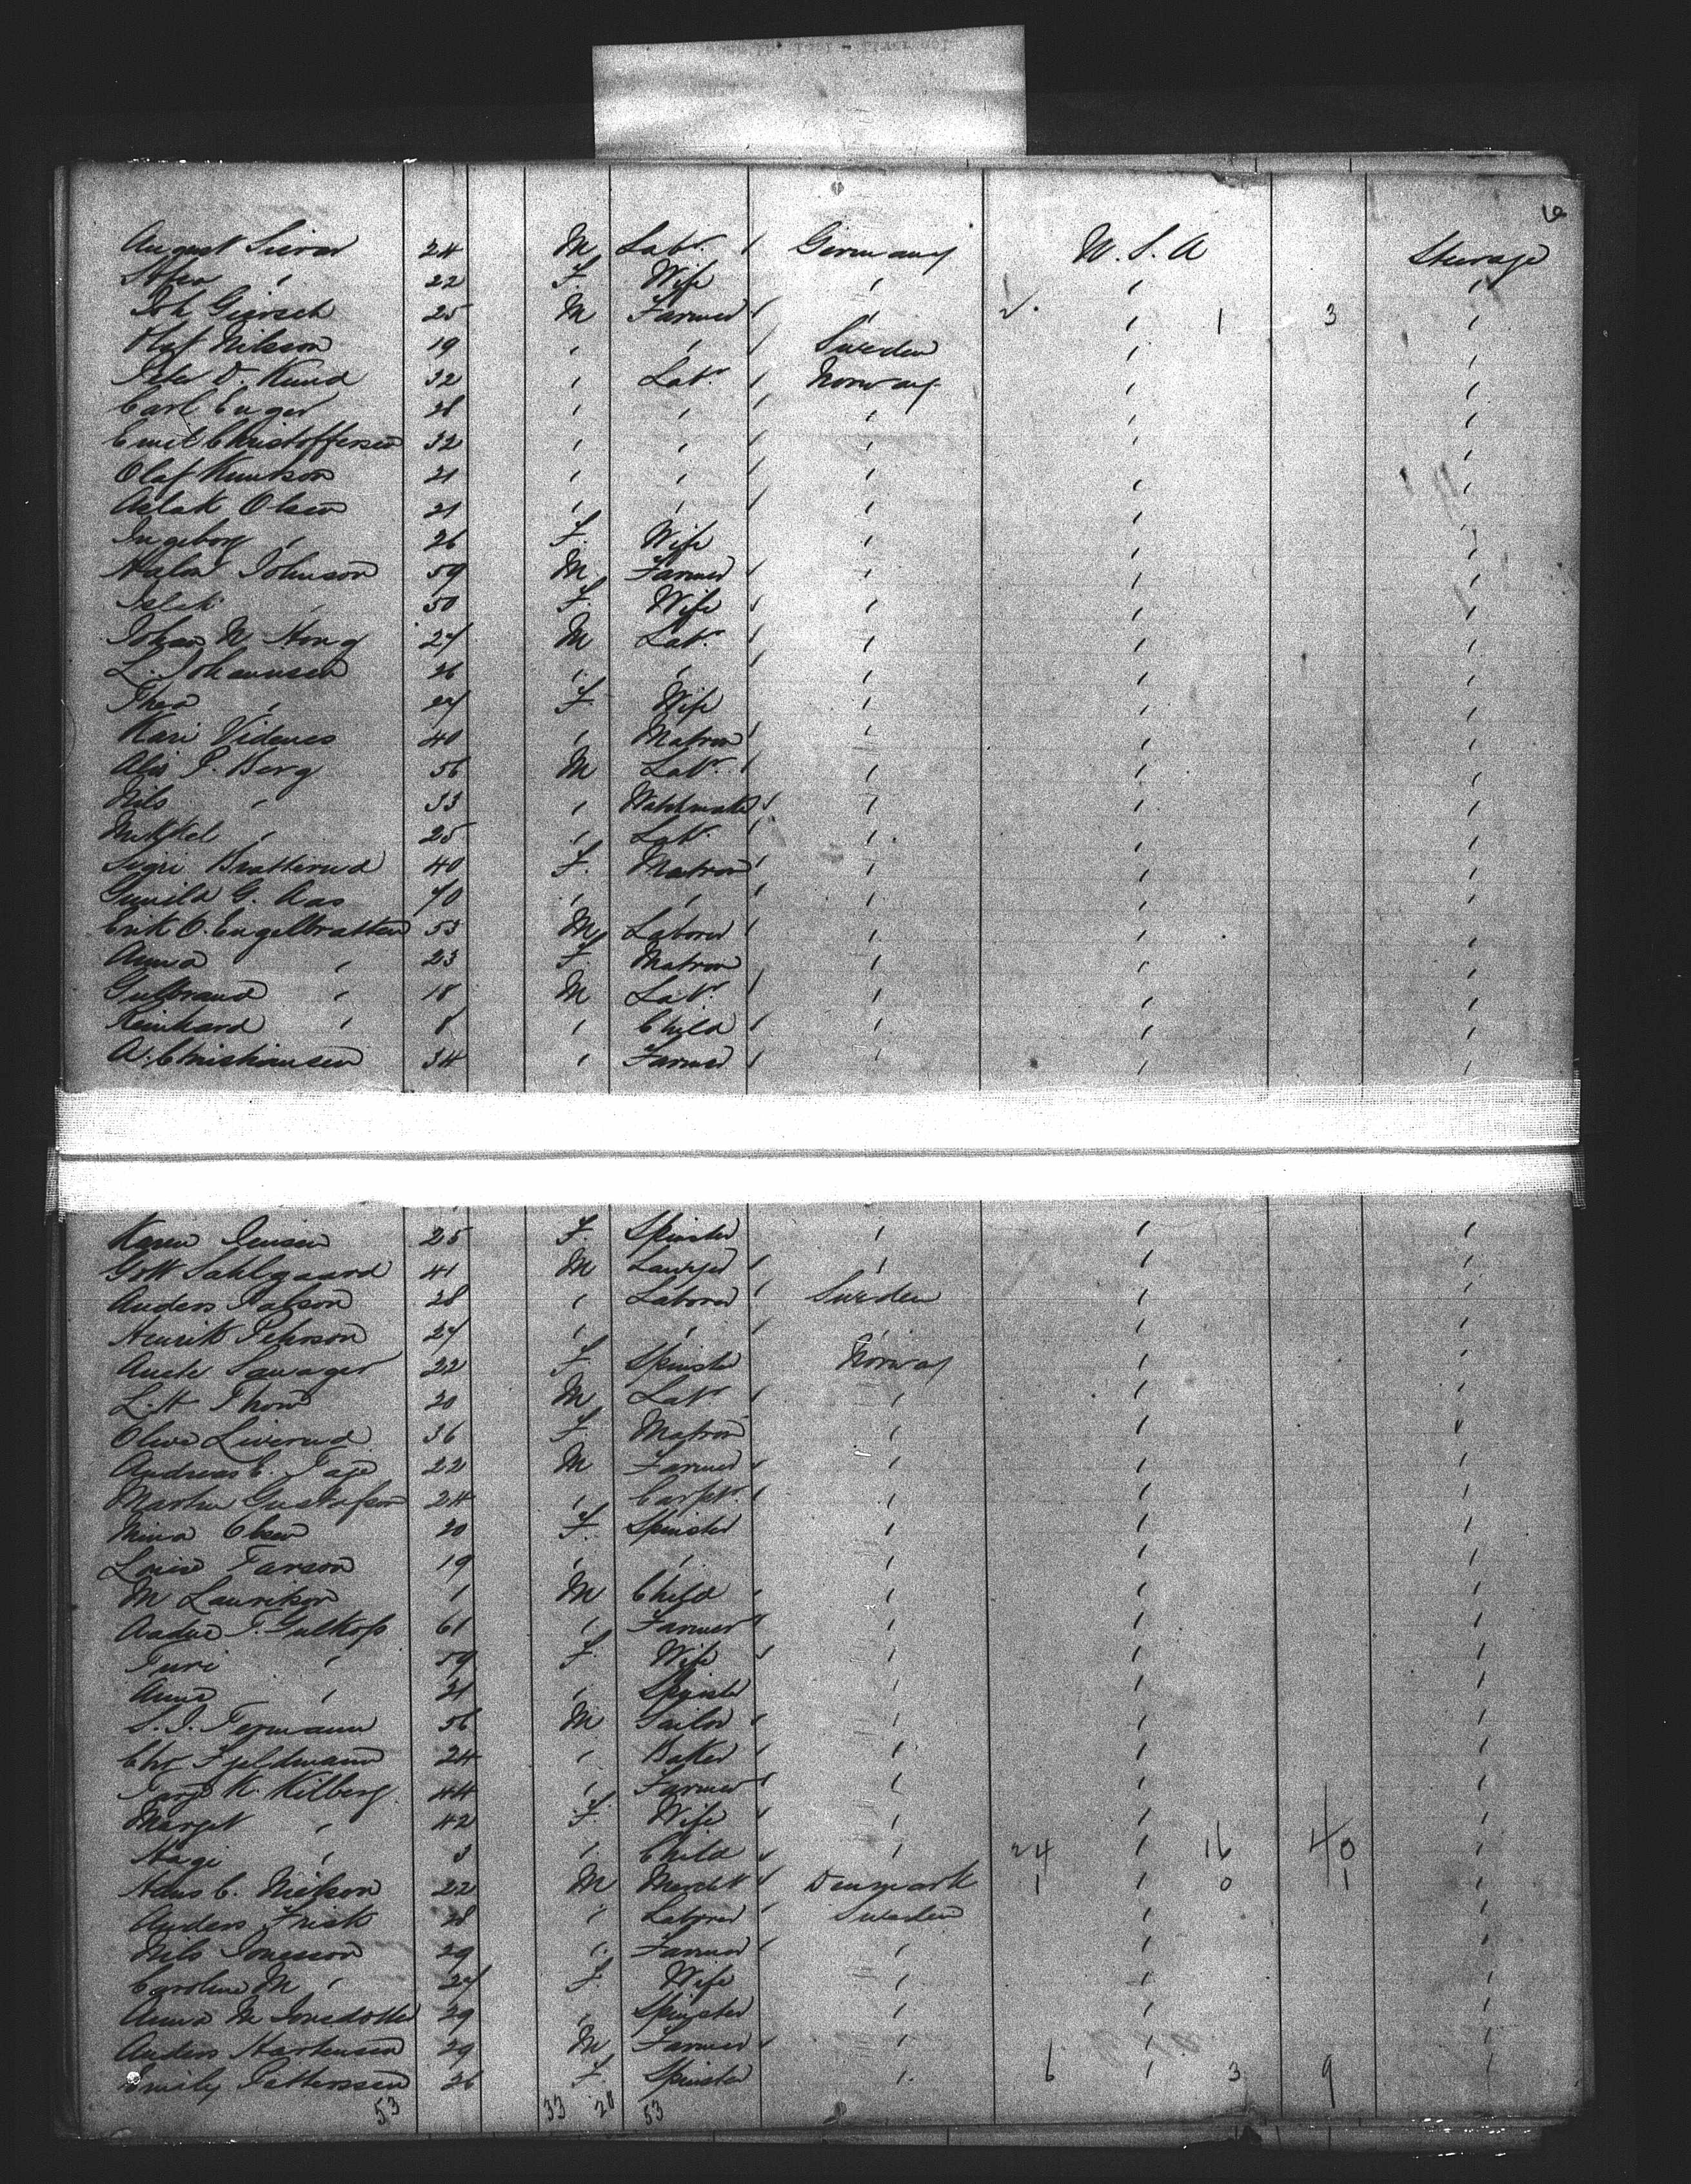 6
August Siever 24 M Labr. Germany U.S.A Steerage
" 22 F. Wife " " "
Joh Giersch 25 M Farmer " " 1 3 "
Olaf Nilsson 19 " " Sweden " "
Peter O. Kund 32 " Labr. Norway " "
Carl Enger 28 " " " " "
Emil Christoffersen 32 " " " " "
Olaf Knutson 21 " " " " "
Aslak Olsen 21 " " " " "
Ingeborg " 26 F. Wife " " "
Johnson 59 M Farmer " " "
" 50 F. Wife " " "
Johan N 27 M Labr. " " "
L. Johannsen 26 " " " " "
Thea " 27 F Wife " " "
Kari Videnes 40 " Matron " " "
P. Berg 56 M Labr. " " "
Nils " 33 " Watchmaker " " "
Mikkel " 25 " Labr. " " "
Sigri Bratterud 40 F. Matron " " "
Gunild G. Aas 70 " " " " "
Erik O. Engelbratten 53 M Laborer " " "
Anna " 23 F. Matron " " "
Gulbrand " 18 M Labr. " " "
Reinhard " 8 " Child " " "
A. Christiansen 34 " Farmer " " "
Karen Jensen 25 F. Spinster " " "
Gott Sahlgaard 41 M Lawyer " " "
Anders Palson 28 " Laborer Sweden " "
Henrik Pehrson 27 " " " " "
Anete 22 F Spinster Norway " "
L. H. Thon 20 M Labr " " "
Oline Liverud 36 F Matron " " "
Andreas E. 22 M Farmer " " "
Martin Gustafson 24 " Carptr. " " "
Mina Olsen 20 F. Spinster " " "
Louise Larson 19 " " " " "
M Laurikson 1 M Child " " "
T. Gulkop 61 " Farmer " " "
Turi " 59 F. Wife " " "
Anne " 21 " Spinster " " "
S. I. 56 M Sailor " " "
Chr Fjeldmann 24 " Baker " " "
K. Kilberg 44 " Farmer " " "
Marget " 42 F. Wife " " "
Hagi " 3 " Child " 24 " 16 40 "
Hans C. Nielson 22 M Denmark 1 " 0 1 "
Anders Frisk 28 " Laborer Sweden " "
Nils Jonesson 29 " Farmer " " "
Caroline M " 27 F. Wife " " "
Anna M Jonsdotter 29 " Spinster " " "
Anders Martensen 29 M Farmer " " "
Emily Patterssen 26 F. Spinster " 6 " 3 9 "
53 33 20 53